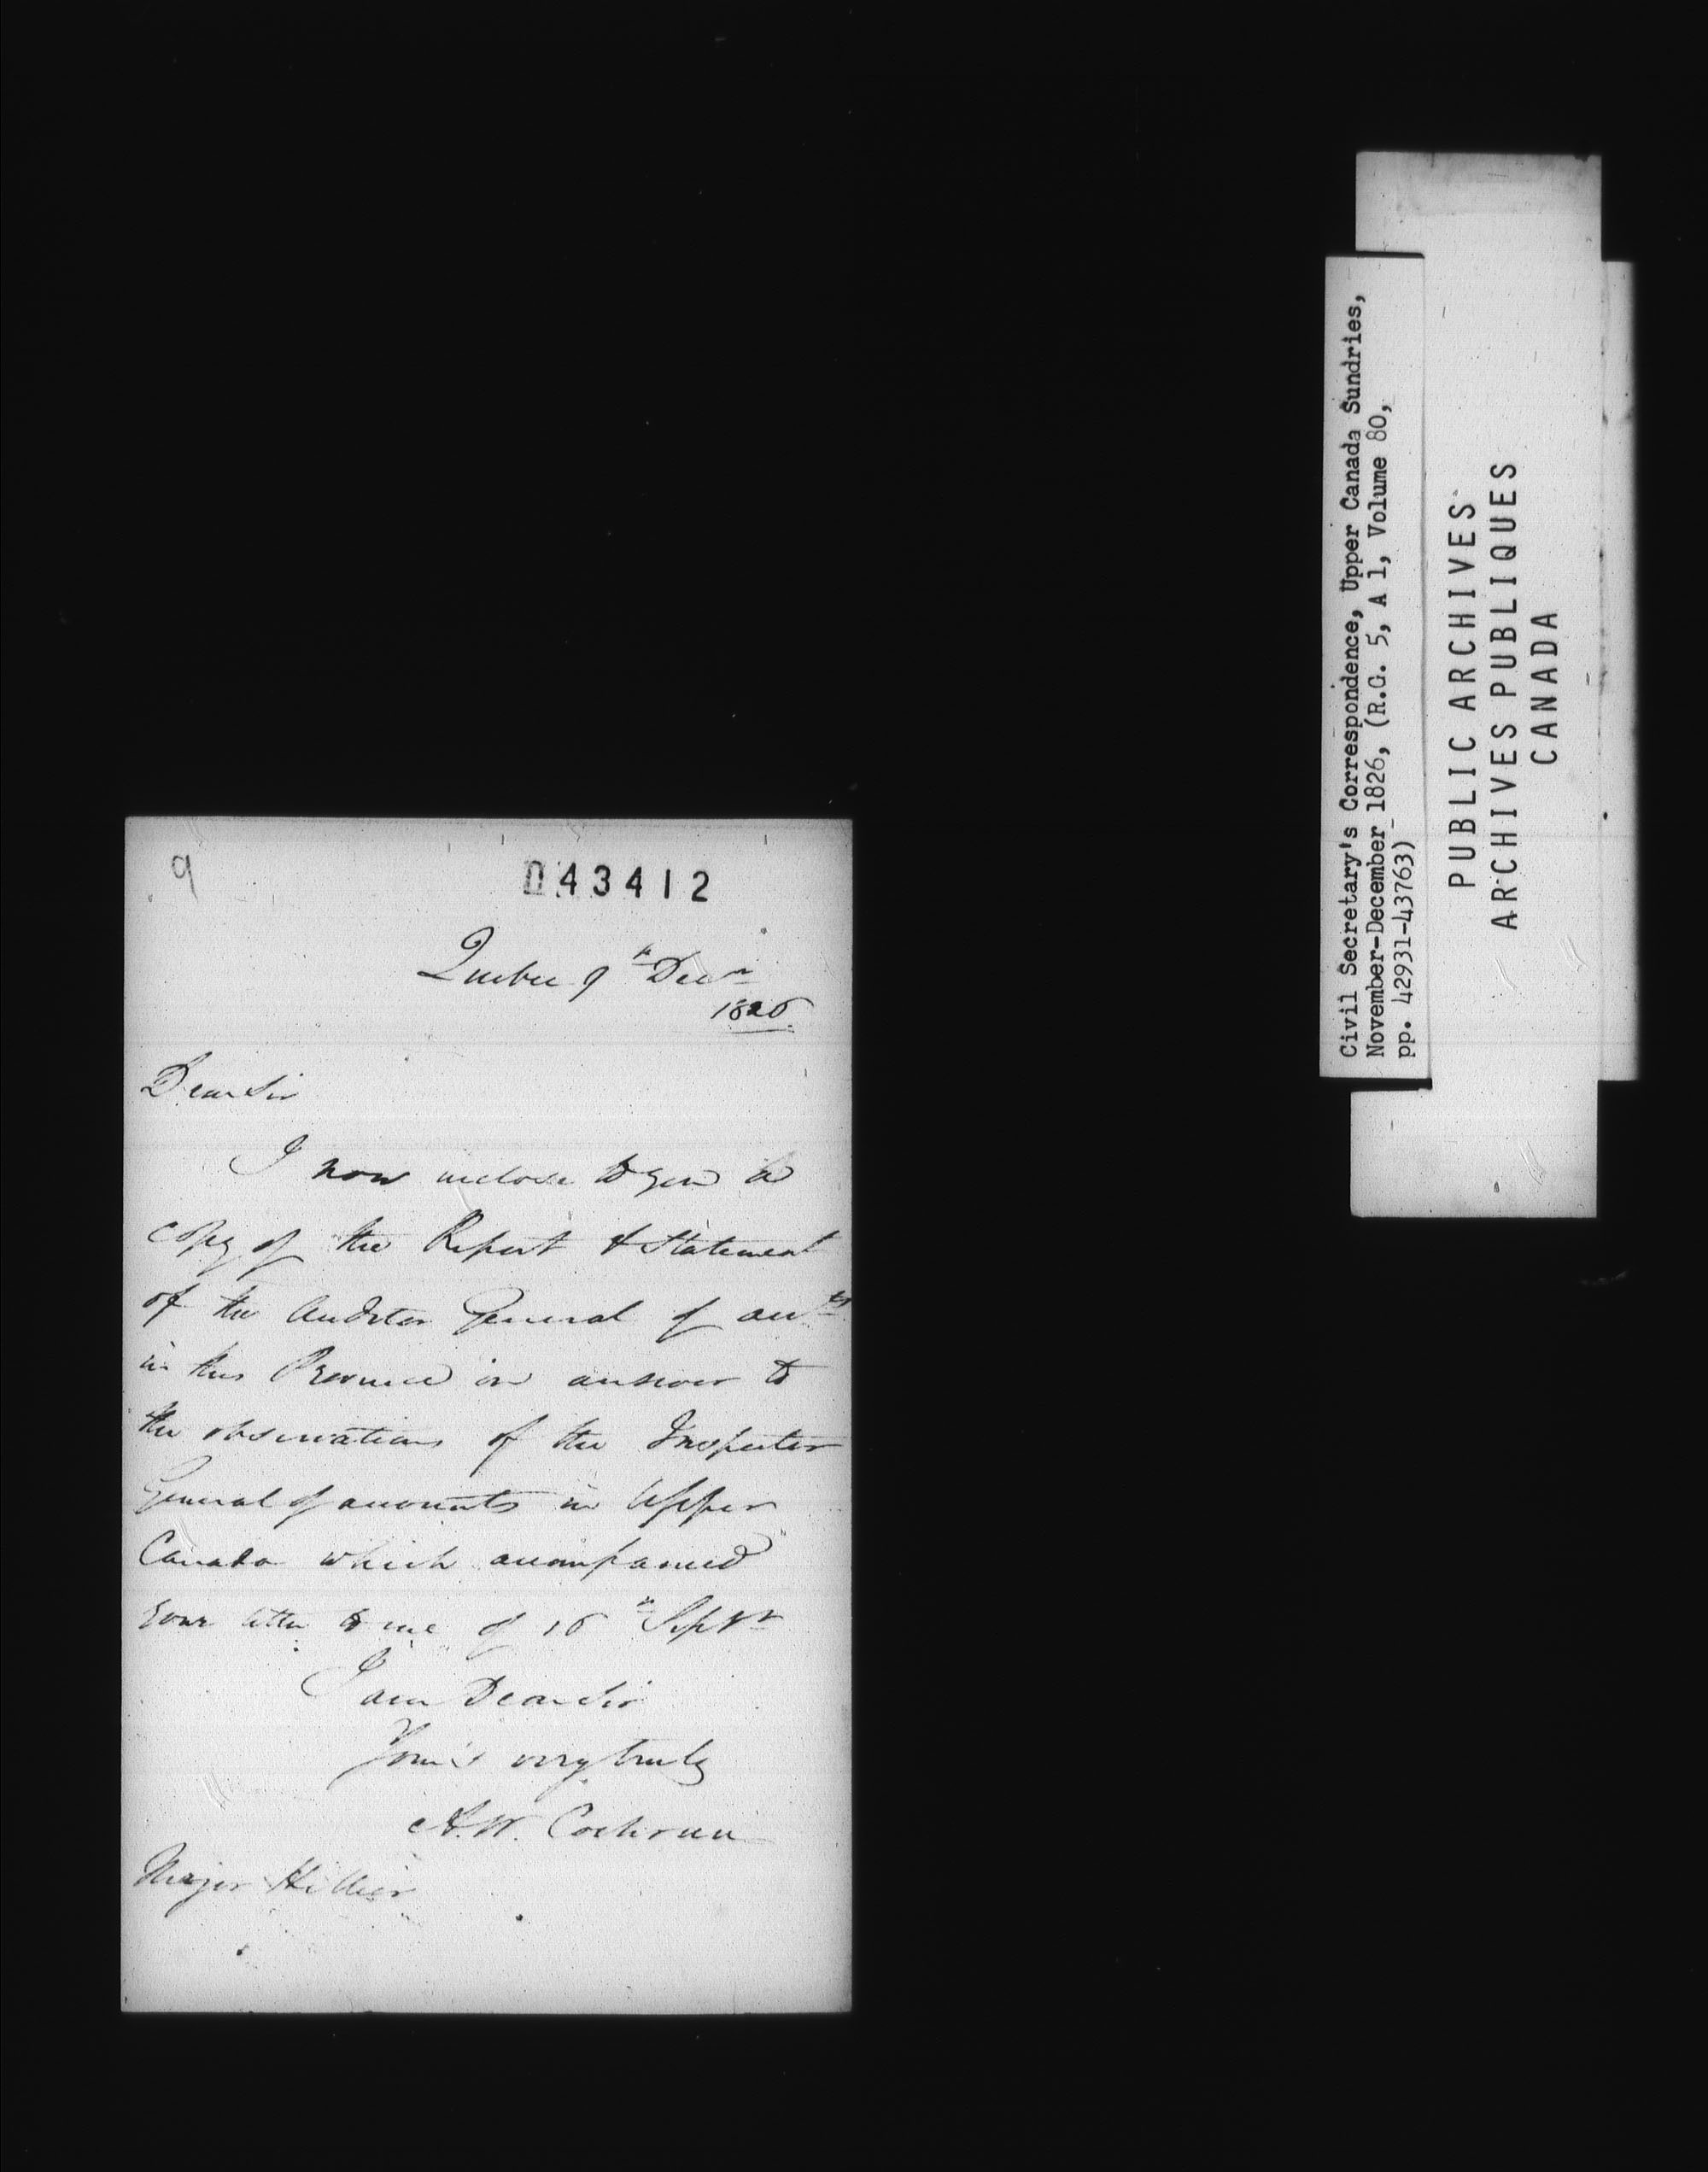 9
043412
Quebec 9th Decr
1826
Dear Sir
I now inclose to you a
copy of the Report & Statement
of the Auditor General of accts
in this Province in answer to
the observations of the Inspector
General of accounts in Upper
Canada which accompanied
your letter to me of 16th Septr
I am Dear Sir
Yours very truly
A.W. Cochran
Major Hillier
Civil Secretary's Correspondence, Upper Canada Sundries,
November-December 1826, (R.G. 5, A 1, Volume 80,
pp. 42931-43763)
PUBLIC ARCHIVES
ARCHIVES PUBLIQUES
CANADA